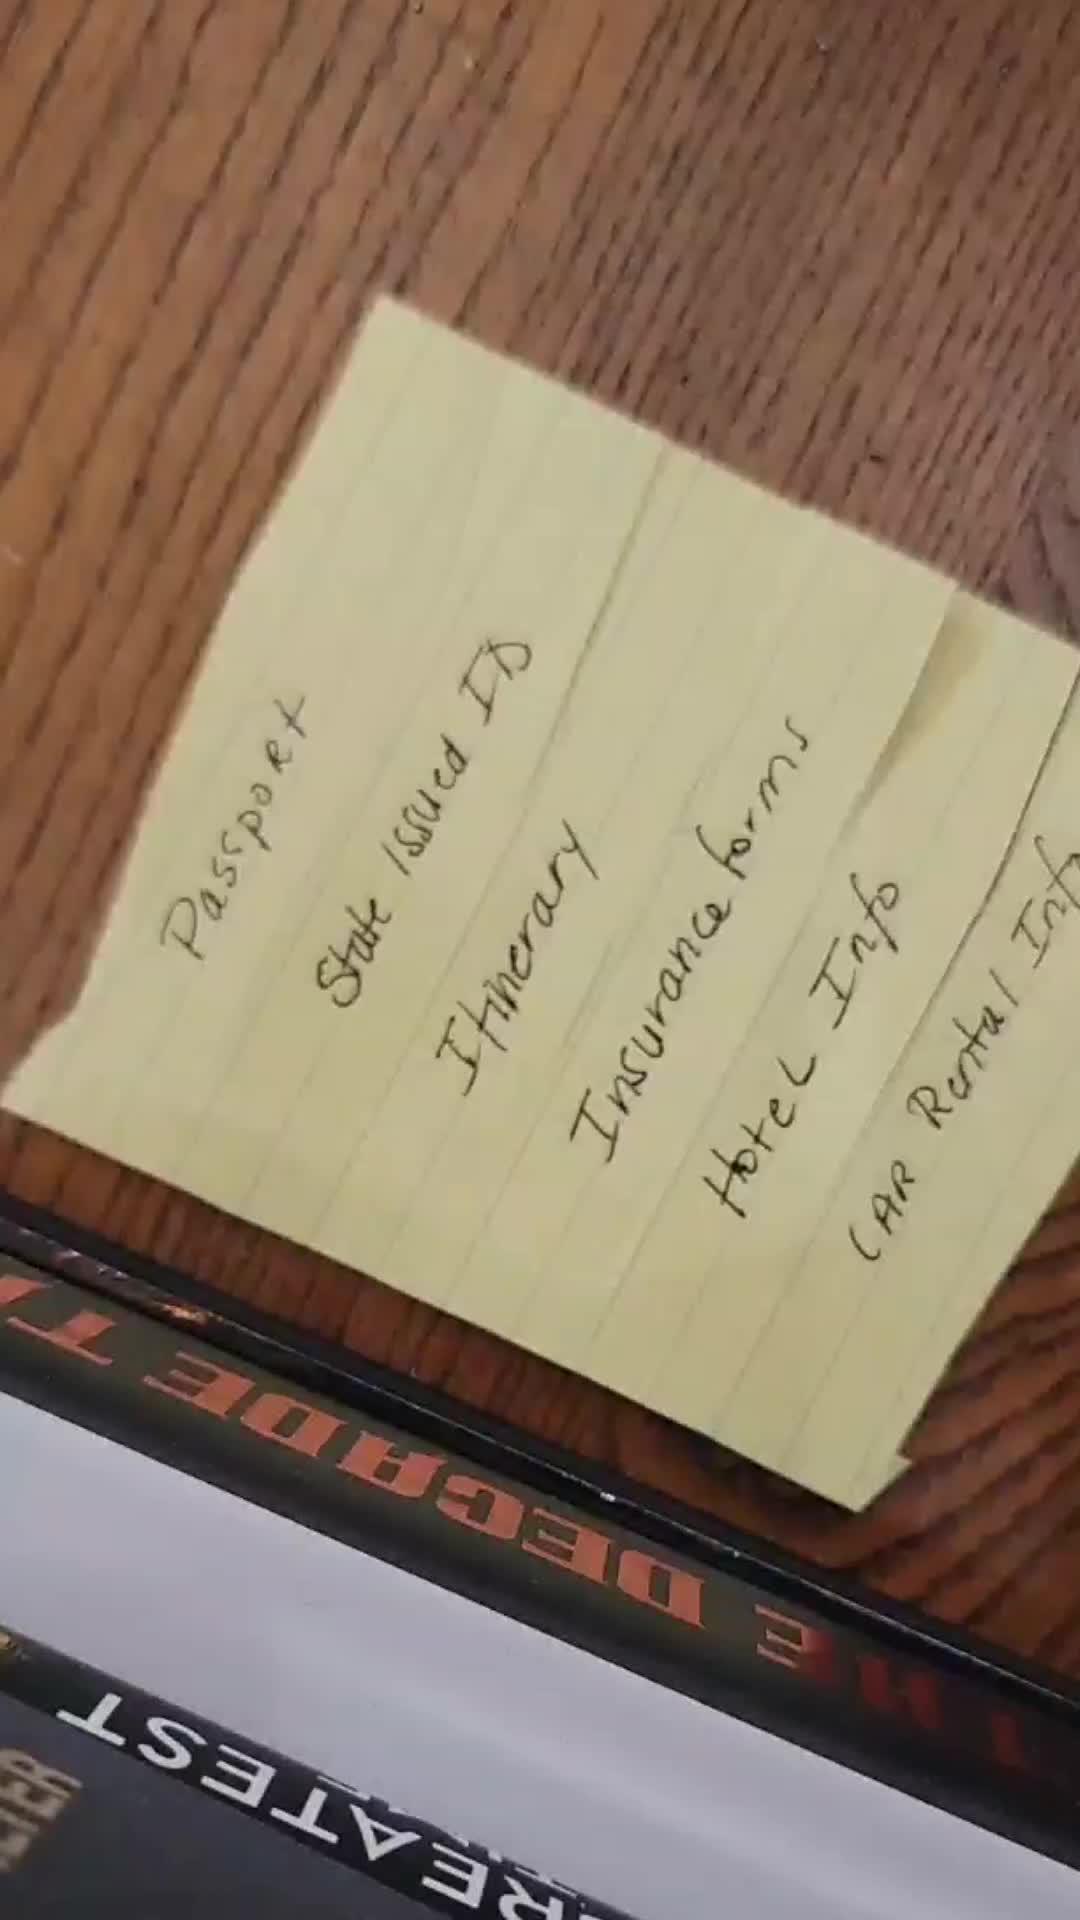 Passport
State Issued ID
Itinerary
Insurance forms
Hotel Info
CAR Rental Info
THE DECADE T
GREATEST